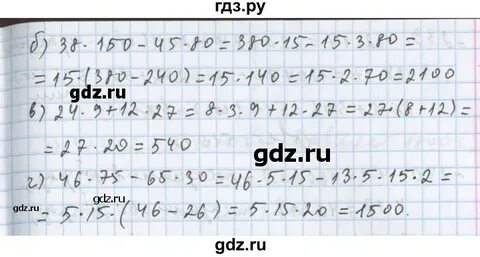 гдз.ру
б) 38·150-45·80=380·15-15·3·80=
=15·(380-240)=15·140=15·2·70=2100
в) 24·9+12·27=8·3·9+12·27=27·(8+12)=
=27·20=540
gdz.ru
г) 46·75-65·30=46·5·15-13·5·15·2=
=5·15·(46-26)=5·15·20=1500.
gdz.ru
gdz.ru
gdz.ru